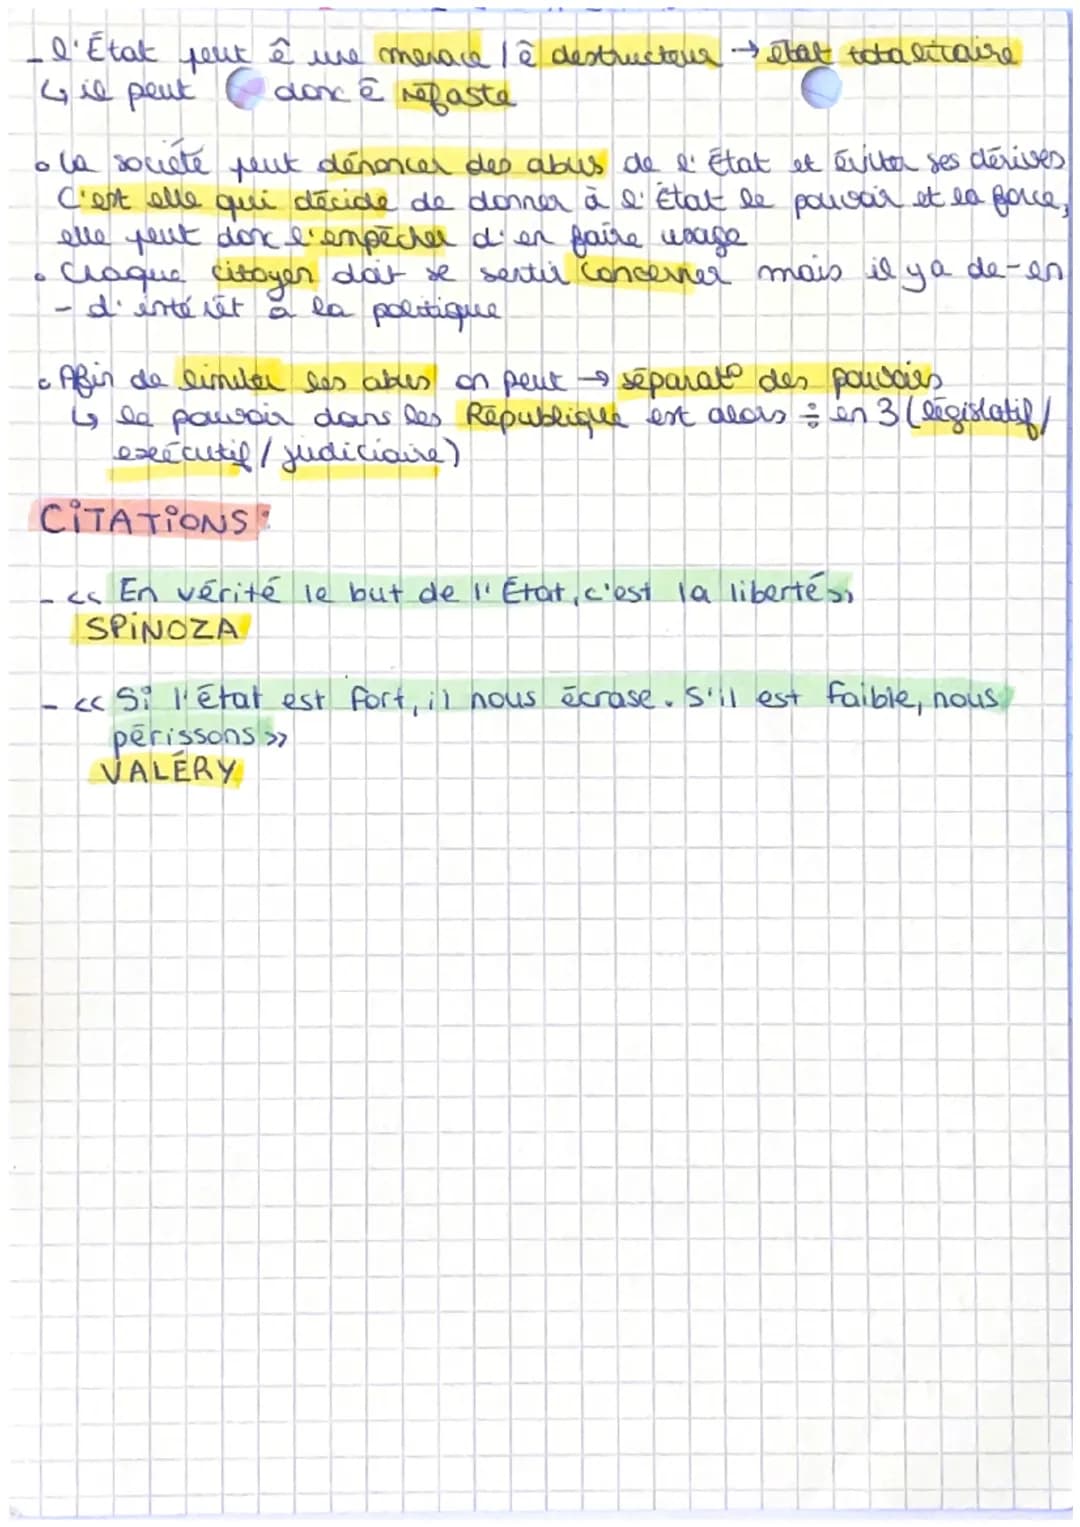 - l'État peut ê une menace / ê destructeur → état totalitaire
↳ il peut donc ê néfaste
• la société peut dénoncer des abus de l'État et éviter ses dérives
C'est elle qui décide de donner à l'État le pouvoir et la force,
elle peut donc l'empêcher d'en faire usage
• Chaque citoyen doit se sentir concerner mais il y a de - en
- d'intérêt à la politique
• Afin de limiter les abus on peut → séparat° des pouvoirs
↳ le pouvoir dans les République est alors ÷ en 3 (législatif /
exécutif / judiciaire)
CITATIONS:
- << En vérité le but de l'État, c'est la liberté >>
SPINOZA
- << Si l'état est fort, il nous écrase. S'il est faible, nous
périssons >>
VALÉRY